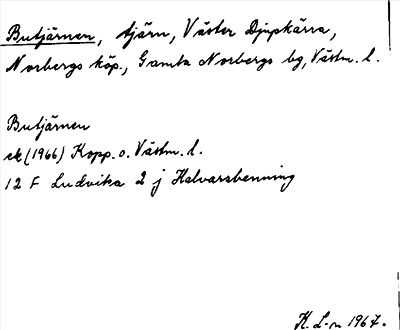 Butjärnen, tjärn, Väster Djupkärra,
Norbergs köp., Gamla Norbergs bg, Västm. l.
Butjärnen
ek (1966) Kopp. o. Västm. l.
12 F Ludvika 2 j Halvarsbenning
K. L-n 1967.